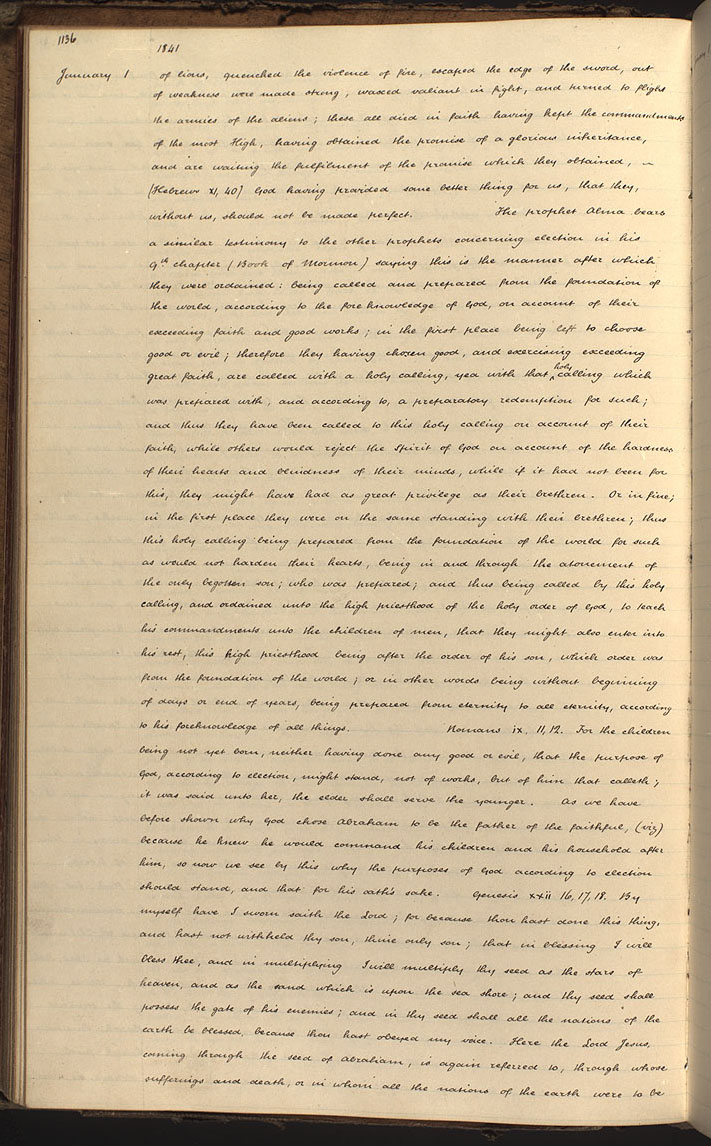 1136
1841
January 1 of lions, quenched the violence of fire, escaped the edge of the sword, out
of weakness were made strong, waxed valiant in fight, and turned to flight
the armies of the aliens; these all died in faith having kept the commandments
of the most High, having obtained the promise of a glorious inheritance,
and are waiting the fulfilment of the promise which they obtained, –
(Hebrews XI, 40) God having provided some better thing for us, that they,
without us, should not be made perfect. The prophet Alma bears
a similar testimony to the other prophets concerning election in his
9th chapter (Book of Mormon) saying this is the manner after which
they were ordained: being called and prepared from the foundation of
the world, according to the foreknowledge of God, on account of their
exceeding faith and good works; in the first place being left to choose
good or evil; therefore they having chosen good, and exercising exceeding
great faith, are called with a holy calling, yea with that holy calling which
was prepared with, and according to, a preparatory redemption for such;
and thus they have been called to this holy calling on account of their
faith, while others would reject the Spirit of God on account of the hardness
of their hearts and blindness of their minds, while if it had not been for
this, they might have had as great privilege as their brethren. Or in fine;
in the first place they were on the same standing with their brethren; thus
this holy calling being prepared from the foundation of the world for such
as would not harden their hearts, being in and through the atonement of
the only begotten son; who was prepared; and thus being called by this holy
calling, and ordained unto the high priesthood of the holy order of God, to teach
his commandments unto the children of men, that they might also enter into
his rest, this high priesthood being after the order of his son, which order was
from the foundation of the world; or in other words being without beginning
of days or end of years, being prepared from eternity to all eternity, according
to his foreknowledge of all things. Romans ix, 11, 12. For the children
being not yet born, neither having done any good or evil, that the purpose of
God, according to election, might stand, not of works, but of him that calleth;
it was said unto her, the elder shall serve the younger. As we have
before shown why God chose Abraham to be the father of the faithful, (viz)
because he knew he would command his children and his household after
him, so now we see by this why the purposes of God according to election
should stand, and that for his oath's sake. Genesis xxii 16, 17, 18. By
myself have I sworn saith the Lord; for because thou hast done this thing,
and hast not withheld thy son, thine only son; that in blessing I will
bless thee, and in multiplying I will multiply thy seed as the stars of
heaven, and as the sand which is upon the sea shore; and thy seed shall
possess the gate of his enemies; and in thy seed shall all the nations of the
earth be blessed, because thou hast obeyed my voice. Here the Lord Jesus,
coming through the seed of Abraham, is again referred to, through whose
sufferings and death, or in whom all the nations of the earth were to be